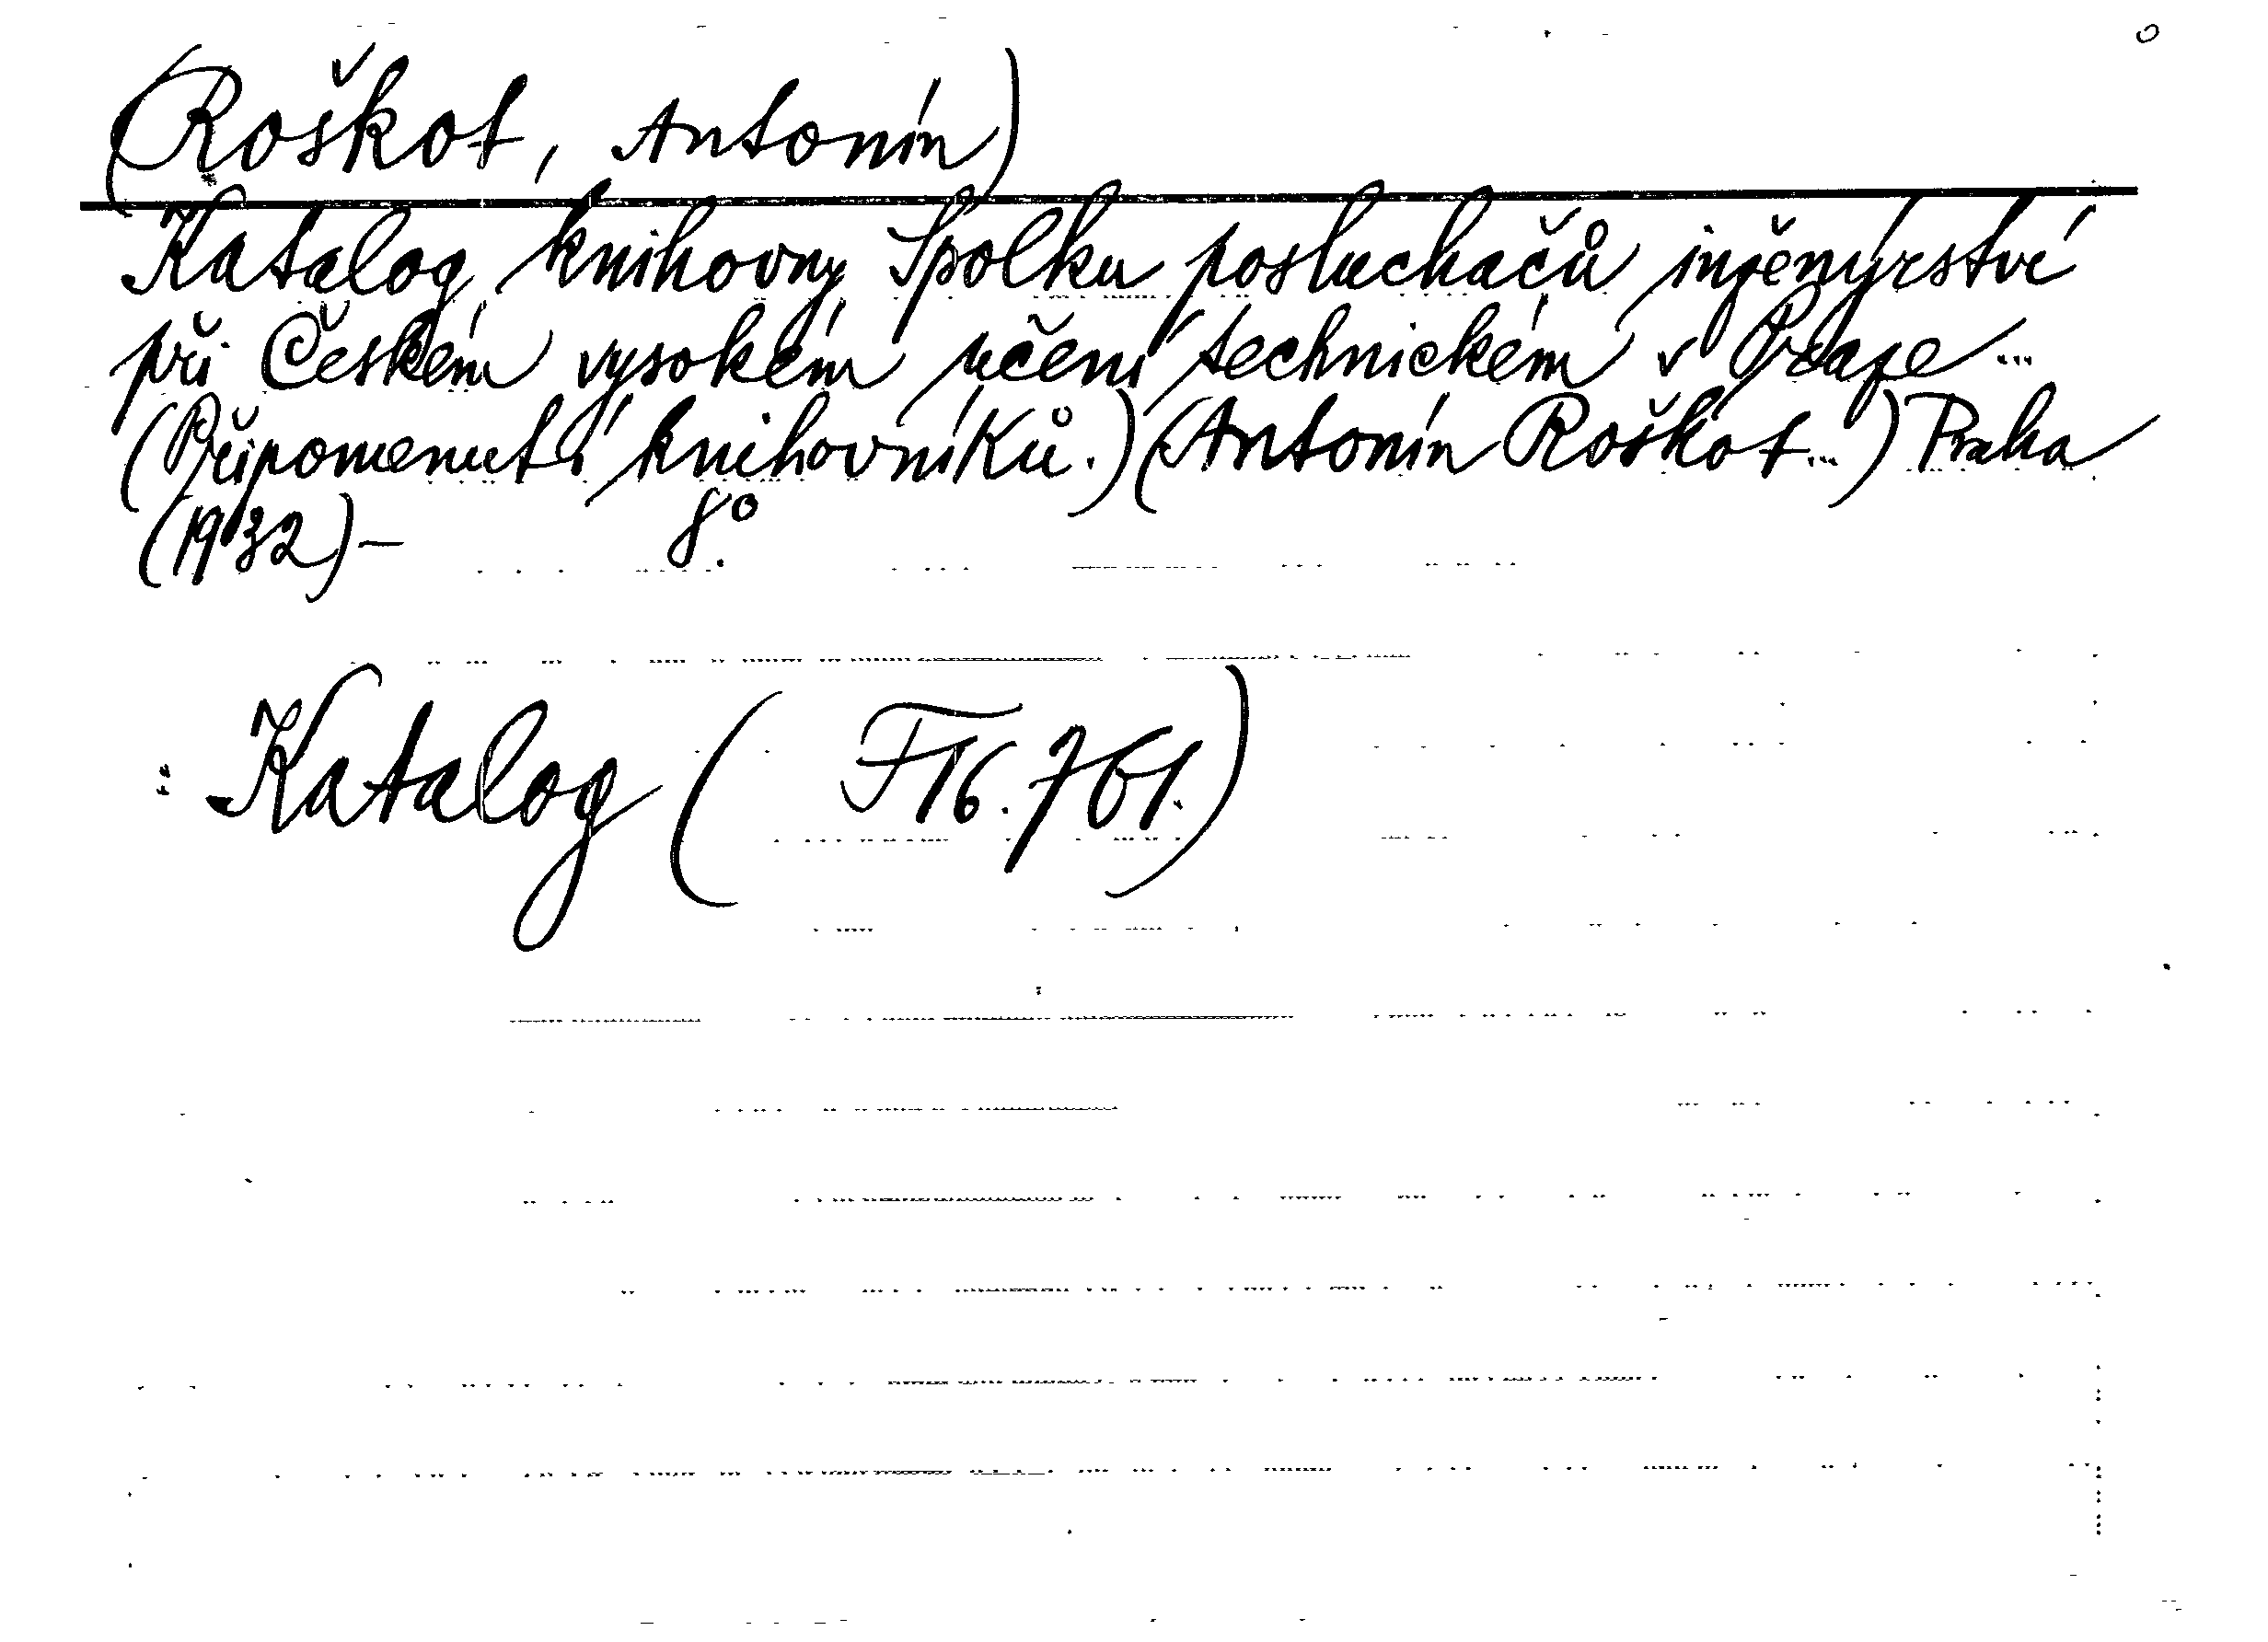 (Roškot, Antonín)
Katalog knihovny Spolku posluchačů inženýrství
při Českém vysokém učení technickém v Praze...
(Připomenutí knihovníků.) (Antonín Roškot...) Praha
(1932)- 8°.
: Katalog ( F 16.761.)